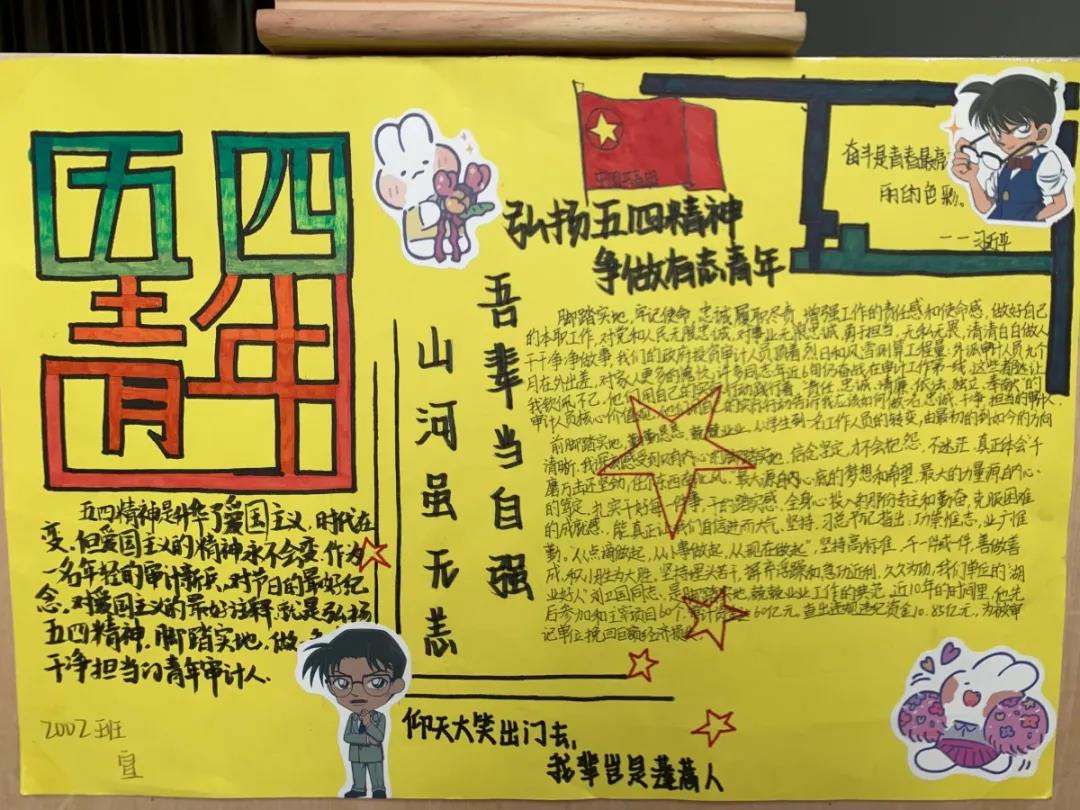 五四
青年
五四精神是升华了爱国主义,时代在
变,但爱国主义的精神永不会变,作为
一名年轻的审计新兵,对节日的最好纪
念,对爱国主义的最好注释,就是弘扬
五四精神,脚踏实地,做一名
干净担当的青年审计人.
2002班
吾辈当自强
山河虽无恙
弘扬五四精神
争做有志青年
奋斗是青春最亮
丽的色彩。
——习近平
脚踏实地,牢记使命,忠诚履职尽责,增强工作的责任感和使命感,做好自己
的本职工作,对党和人民无限忠诚,对事业无限忠诚,勇于担当,无私无畏,清清白白做人
干干净净做事,我们的政府投资审计人员顶着烈日和风雪测算工程量,外派审计人员九个
月在外出差,对家人更多的愧疚,许多同志年近6旬仍奋战在审计工作第一线,这些都让
我钦佩不已,他们用自己的实际行动践行着"责任、忠诚、清廉、依法、独立、奉献"的
审计人员核心价值观,
一名工作人员的转变,由最初的到如今的方向
清晰,我深刻感受到
信念坚定,才会把怨,不迷茫,真正体会"千
磨万击还坚劲,任尔东西南北风"。最大源自内心底的梦想和希望,最大的力量源自心
的笃定,扎实干好每一件事,干的踏实感,全身心投入的那份专注和勤奋,克服困难
的成就感,能真正让我们自信进而大气,坚持,习总书记指出,功崇惟志,业广惟
勤。从点滴做起,从小事做起,从现在做起"坚持高标准,干一件成一件,善做善
成,积小胜为大胜,坚持埋头苦干,摒弃浮躁和急功近利,久久为功,我们单位的"湖
业好人"刘卫国同志,是脚踏实地,兢兢业业工作的典范,近10年的时间里,他先
后参加和主审项目60个,审计资金60亿元,查出违规违纪资金10.85亿元,为被审
记单位挽回巨额经济损
仰天大笑出门去,
我辈岂是蓬蒿人